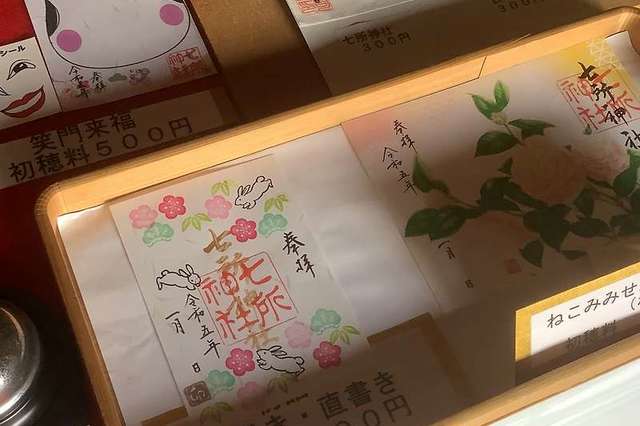 シール
奉拝
令和五年
七所神社
笑門来福
初穂料５００円
七所神社
３００円
奉拝
七所神社
七所神社
令和五年
一月
日
奉拝
令和五年
一月
日
七所神社
七所神社
ねこみみせ
初穂料
き・直書き
００円